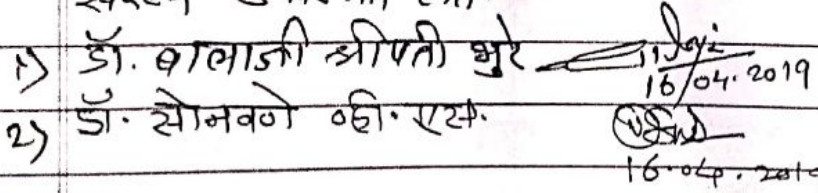 1) डॉ. बालाजी श्रीपती भुरे 16/04.2019
2) डॉ. सोनवणे व्ही. एस.
16.04.201